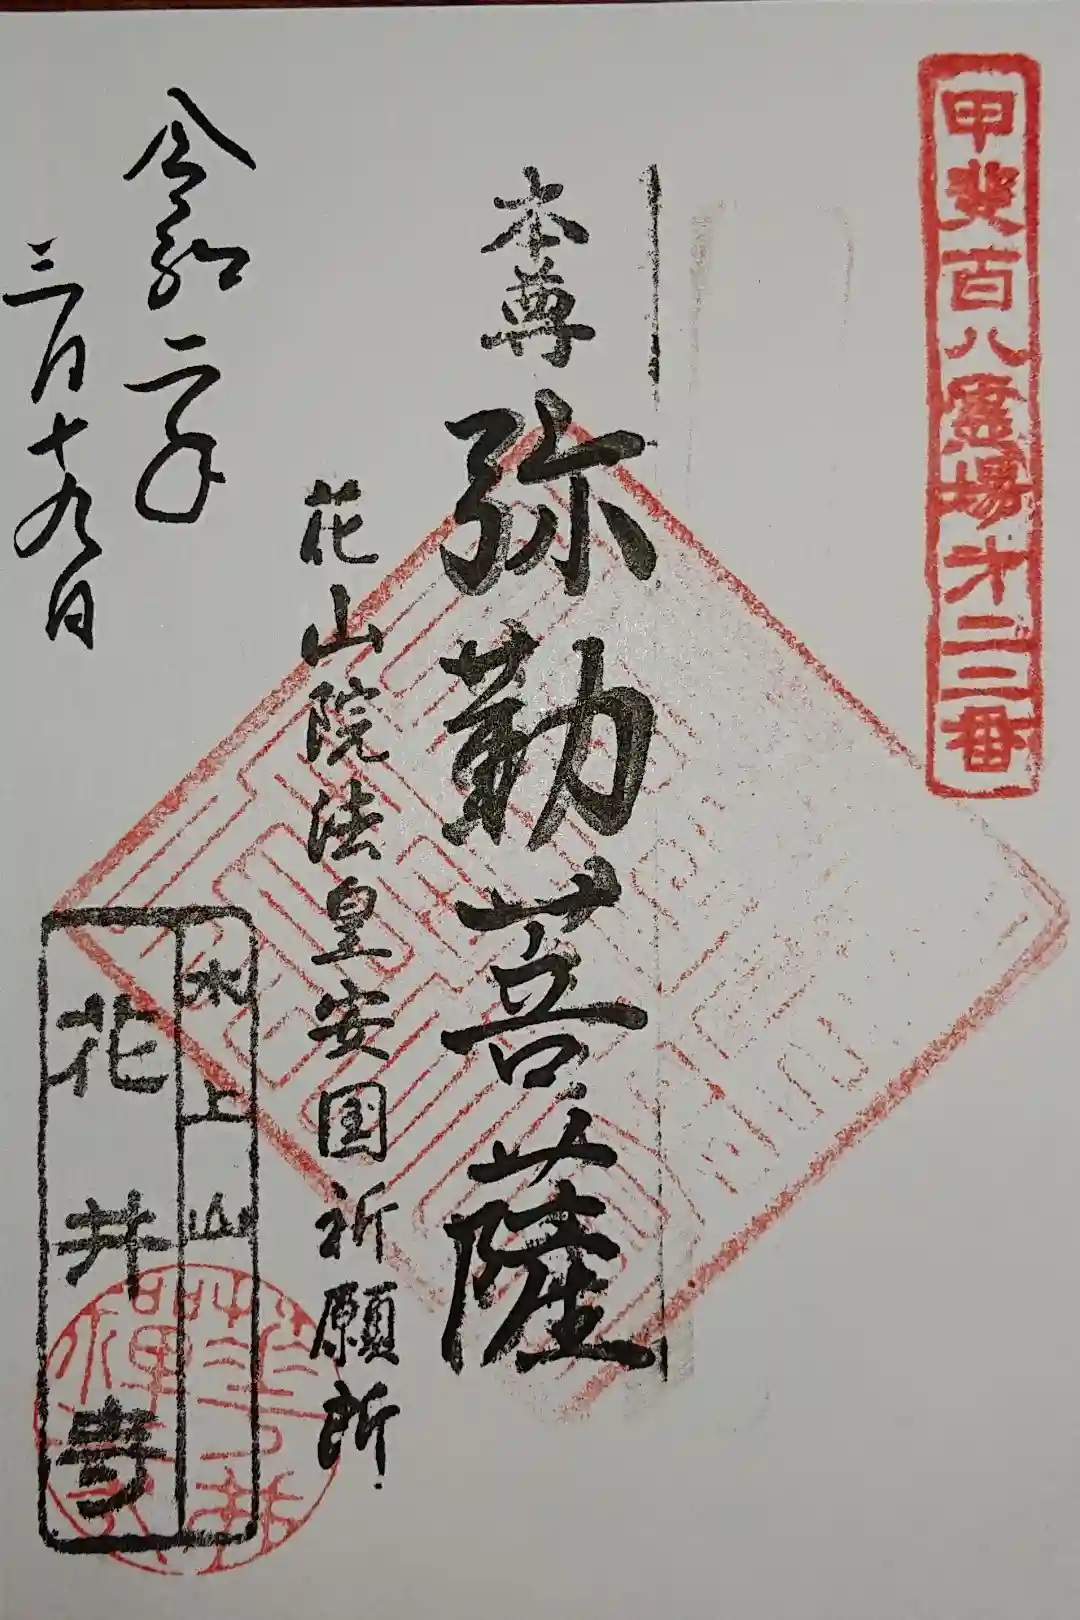 甲斐百八霊場才二二番
本尊
弥勒菩薩
花山院法皇安国祈願所
水上山
花井寺
令和二年
三月十九日